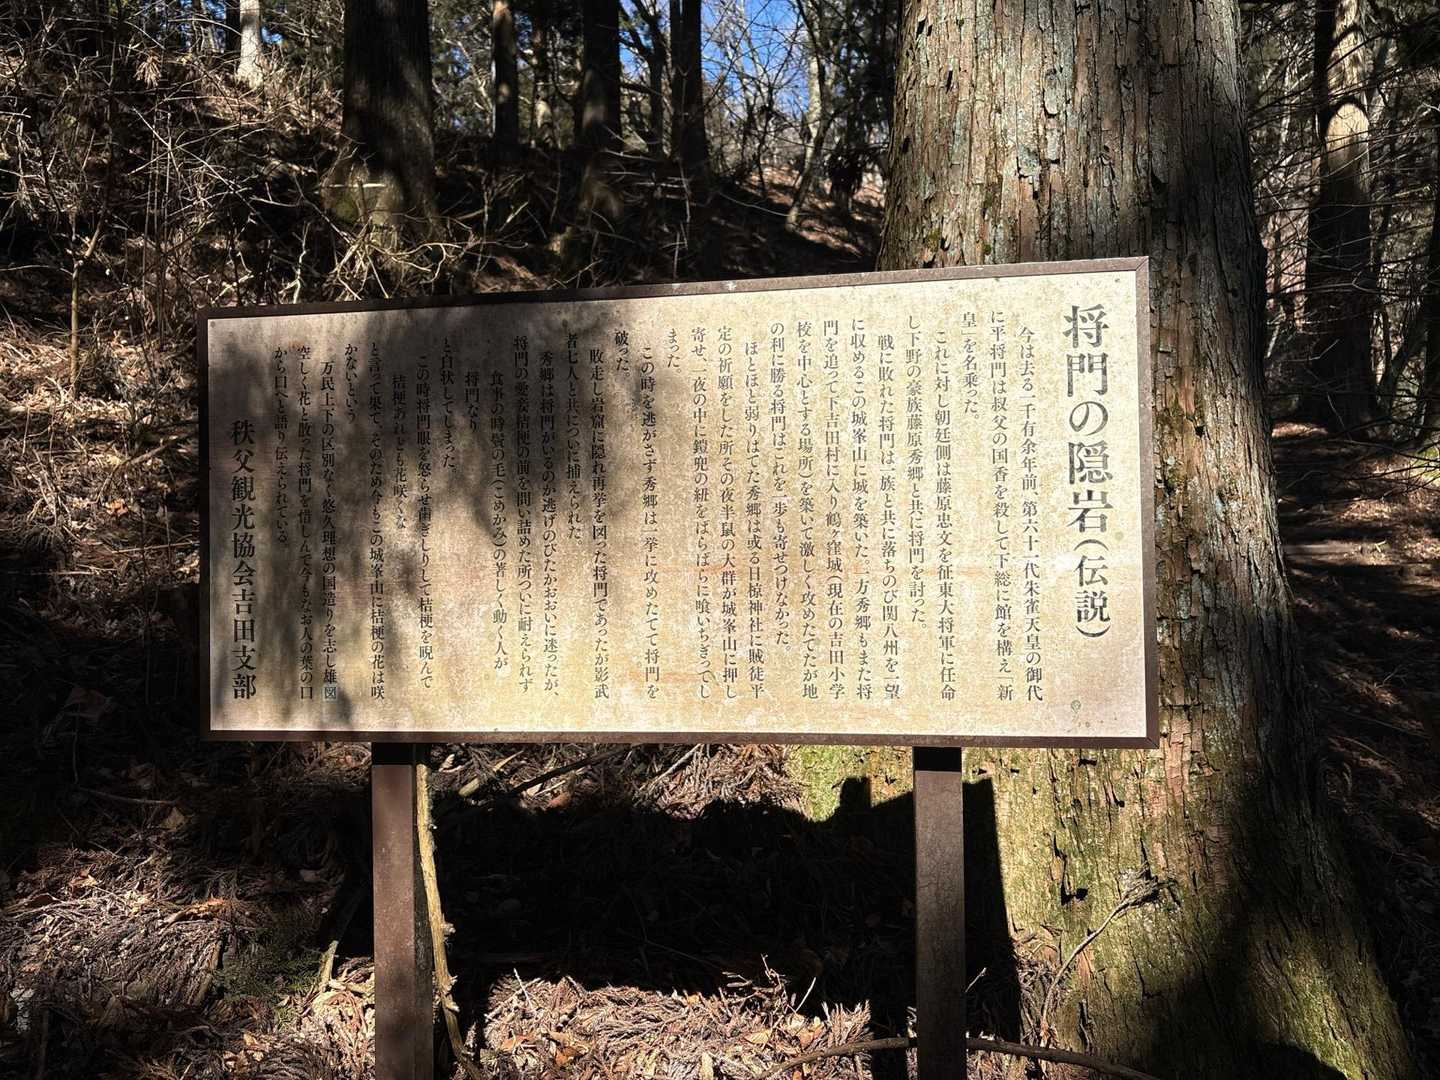 将門の隠岩(伝説)
今は去る一千有余年前、第六十一代朱雀天皇の御代
に平将門は叔父の国香を殺して下総に館を構え「新
皇」を名乗った。
これに対し朝廷側は藤原忠文を征東大将軍に任命
し下野の豪族藤原秀郷と共に将門を討った。
戦に敗れた将門は一族と共に落ちのび関八州を一望
に収めるこの城峯山に城を築いた。一方秀郷もまた将
門を追って下吉田村に入り鶴ヶ窪城(現在の吉田小学
校を中心とする場所)を築いて激しく攻めたてたが地
の利に勝る将門はこれを一歩も寄せつけなかった。
ほとほと弱りはてた秀郷は或る日椋神社に賊徒平
定の祈願をした所その夜半鼠の大群が城峯山に押し
寄せ、一夜の中に鎧兜の紐をばらばらに喰いちぎってし
まった。
この時を逃がさず秀郷は一挙に攻めたてて将門を
破った。
敗走し岩窟に隠れ再挙を図った将門であったが影武
者七人と共についに捕えられた。
秀郷は将門がいるのか逃げのびたかおおいに迷ったが、
将門の愛妾桔梗の前を問い詰めた所ついに耐えられず
食事の時鬢の毛(こめかみ)の著しく動く人が
将門なり
と白状してしまった。
この時将門眼を怒らせ歯ぎしりして桔梗を睨んで
桔梗あれども花咲くな
と言って果て、そのため今もこの城峯山に桔梗の花は咲
かないという
万民上下の区別なく悠久理想の国造りを志し雄図
空しく花と散った将門を惜しんで今もなお人の葉の口
から口へと語り伝えられている。
秩父観光協会吉田支部